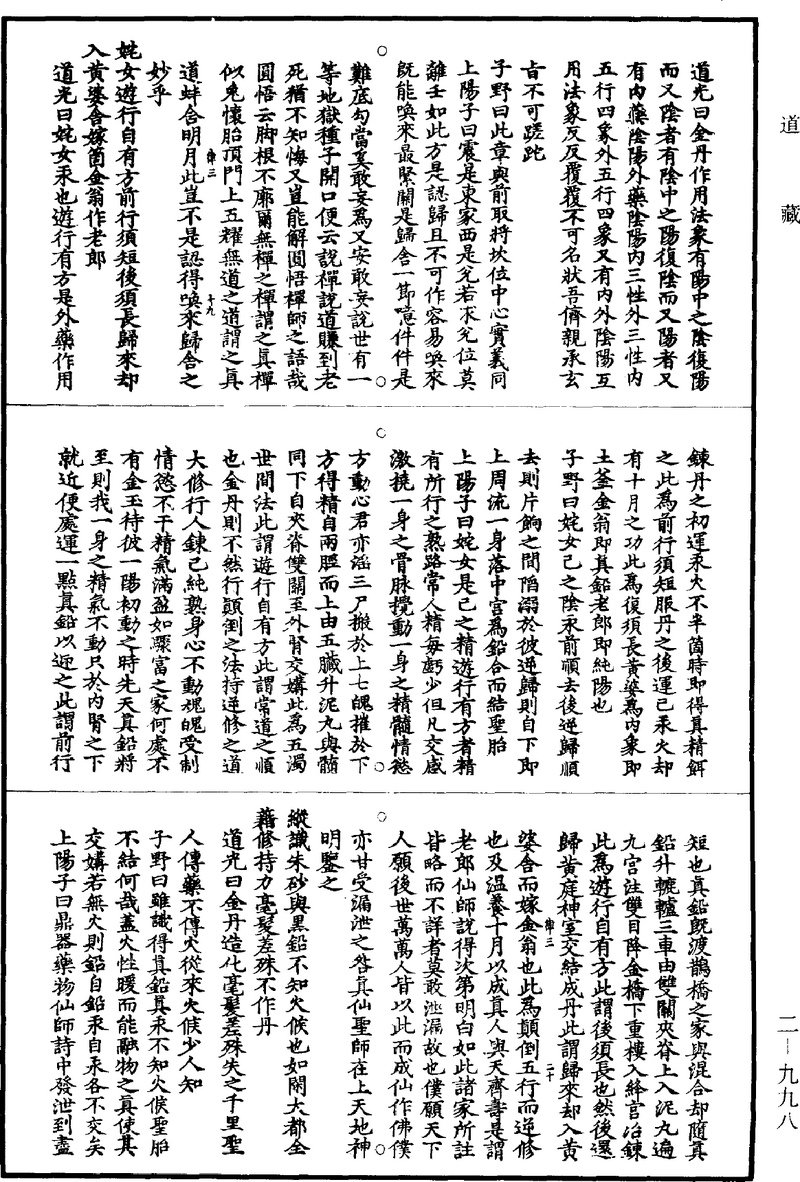 道光曰金丹作用法象有陽中之陰復陽
而又陰者有陰中之陽復陰而又陽者又
有內藥陰陽外藥陰陽內三性外三性內
五行四象外五行四象又有內外陰陽互
用法象反反覆覆不可名狀吾儕親承玄
旨不可蹉跎
子野曰此章與前取將坎位中心實義同
上陽子曰震是東家西是兌若求兌位莫
離壬如此方是認歸且不可作容易喚來
旣能喚來最緊關是歸舍一節噫件件是
難底勾當奚敢妄爲又安敢妄說世有一
等地獄種子開口便云說禪說道賺到老
死猶不知悔又豈能解圓悟禪師之語哉
圓悟云脚根不廓爾無禪之禪謂之眞禪
似兔懷胎頂門上五耀無道之道謂之眞
道蚌含明月此豈不是認得喚來歸舍之
妙乎
律三
十九
姹女遊行自有方前行須短後須長歸來却
入黃婆舍嫁箇金翁作老郎
道光曰姹女汞也遊行有方是外藥作用
鍊丹之初運汞火不半箇時即得眞精餌
之此爲前行須短服丹之後運已汞火却
有十月之功此爲復須長黃婆爲內象即
土釜金翁即眞鉛老郎即純陽也
子野曰姹女己之陰汞前順去後逆歸順
去則片餉之間陷溺於彼逆歸則自下即
上周流一身落中宮爲鉛合而結聖胎
上陽子曰姹女是己之精遊行有方者精
有所行之熟路常人精每虧少但凡交感
激撓一身之骨脉攪動一身之精髓情慾
方動心君亦淫三尸搬於上七魄摧於下
方得精自兩脛而上由五臟升泥丸與髓
同下自夾脊雙關至外腎交媾此爲五濁
世間法此謂遊行自有方此謂常道之順
也金丹則不然行顚倒之法持逆修之道
大修行人鍊己純熟身心不動魂魄受制
情慾不干精氣滿盈如驟富之家何處不
有金玉待彼一陽初動之時先天眞鉛將
至則我一身之精氣不動只於內腎之下
就近便處運一點眞鉛以迎之此謂前行
短也眞鉛旣渡鵲橋之家與混合却隨眞
鉛升轆轤三車由雙關夾脊上入泥丸遍
九宮注雙目降金橋下重樓入絳宮冶鍊
此爲遊行自有方此謂後須長也然後還
歸黃庭神室交結成丹此謂歸來却入黃
律三
二十
婆舍而嫁金翁也此爲顚倒五行而逆修
也及溫養十月以成眞人與天齊壽是謂
老郎仙師說得次第明白如此諸家所註
皆略而不詳者莫敢泄漏故也僕願天下
人願後世萬萬人皆以此而成仙作佛僕
亦甘受漏泄之咎眞仙聖師在上天地神
明鑒之
縱識朱砂與黑鉛不知火候也如閑大都全
藉修持力毫髮差殊不作丹
道光曰金丹造化毫髮差殊失之千里聖
人傳藥不傳火從來火候少人知
子野曰雖識得眞鉛眞汞不知火候聖胎
不結何哉蓋火性暖而能融物之眞使其
交媾若無火則鉛自鉛汞自汞各不交矣
上陽子曰鼎器藥物仙師詩中發泄到盡
道藏
二－九九八